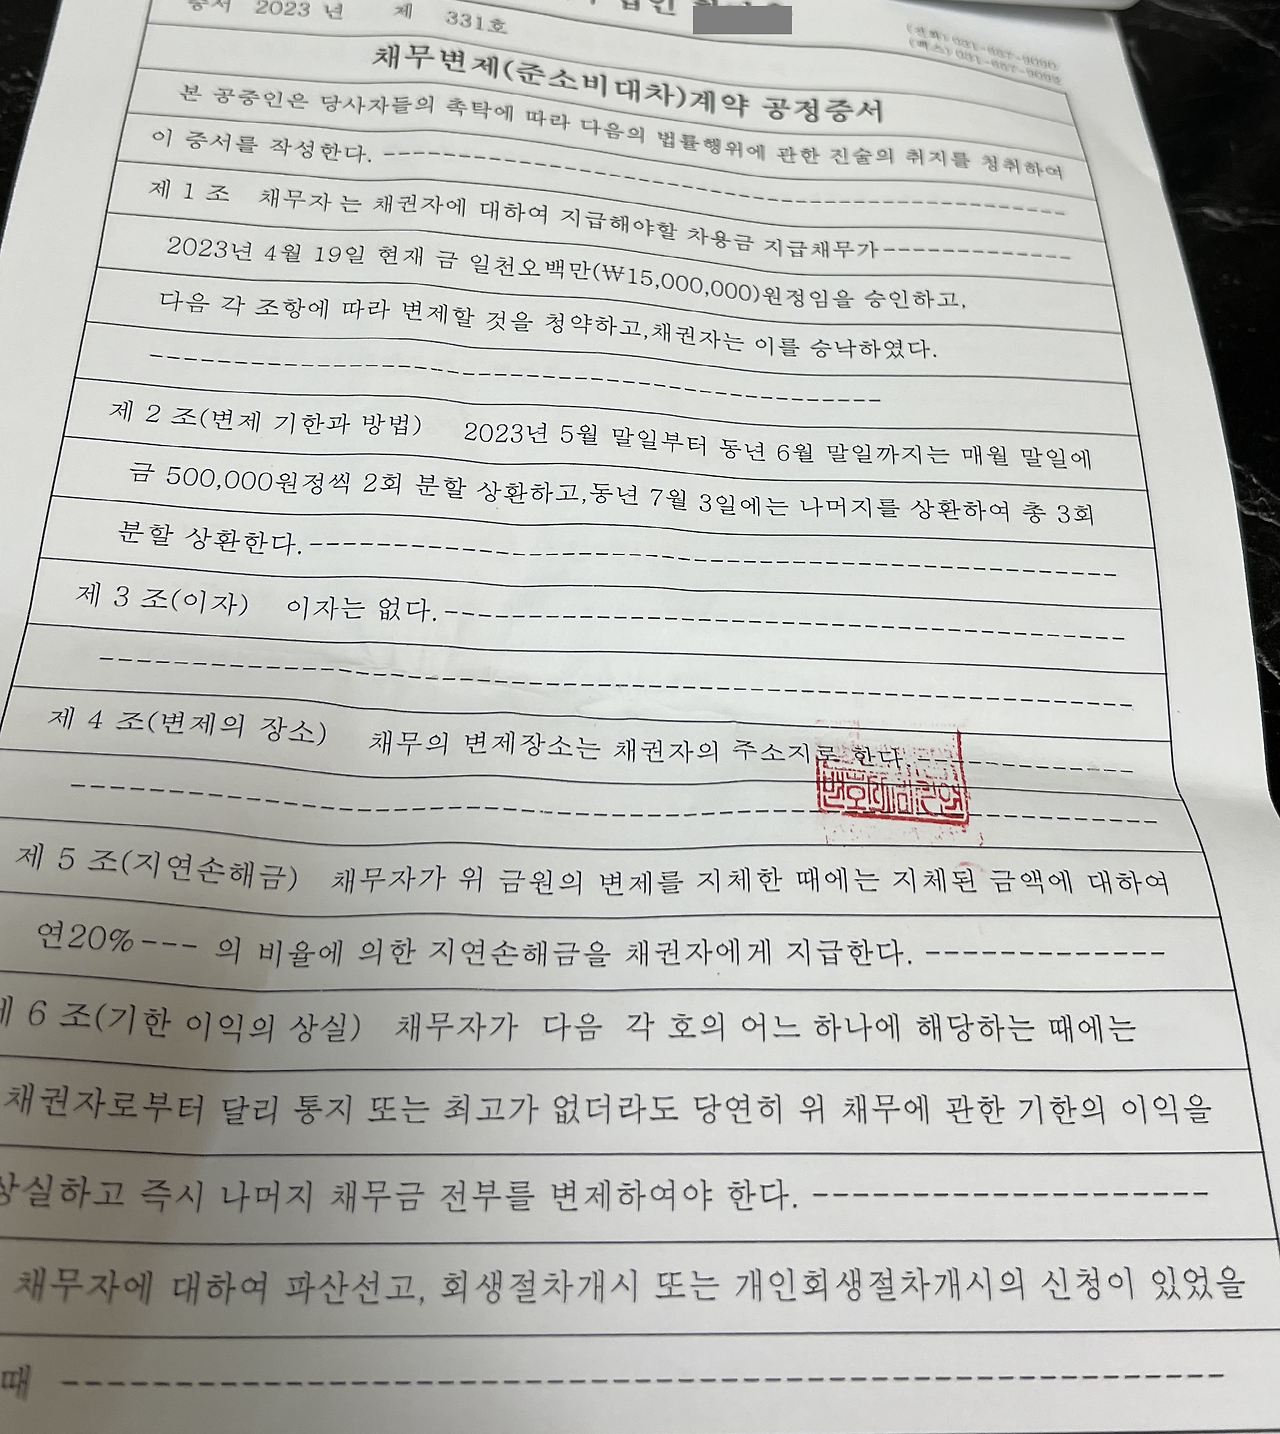 증서 2023 년 제 331호
채무변제(준소비대차)계약 공정증서
본 공증인은 당사자들의 촉탁에 따라 다음의 법률행위에 관한 진술의 취지를 청취하여
이 증서를 작성한다. ------------------------------------------------
제 1 조 채무자 는 채권자에 대하여 지급해야할 차용금 지급채무가------------
2023년 4월 19일 현재 금 일천오백만(₩15,000,000)원정임을 승인하고,
다음 각 조항에 따라 변제할 것을 청약하고,채권자는 이를 승낙하였다.
------------------------------------------------
제 2 조(변제 기한과 방법) 2023년 5월 말일부터 동년 6월 말일까지는 매월 말일에
금 500,000원정씩 2회 분할 상환하고,동년 7월 3일에는 나머지를 상환하여 총 3회
분할 상환한다.------------------------------------------------
제 3 조(이자) 이자는 없다.------------------------------------------
------------------------------------------------
제 4 조(변제의 장소) 채무의 변제장소는 채권자의 주소지로 한다.--------------
------------------------------------------------
제 5 조(지연손해금) 채무자가 위 금원의 변제를 지체한 때에는 지체된 금액에 대하여
연20%--- 의 비율에 의한 지연손해금을 채권자에게 지급한다. -------------
제 6 조(기한 이익의 상실) 채무자가 다음 각 호의 어느 하나에 해당하는 때에는
채권자로부터 달리 통지 또는 최고가 없더라도 당연히 위 채무에 관한 기한의 이익을
상실하고 즉시 나머지 채무금 전부를 변제하여야 한다. --------------------
채무자에 대하여 파산선고, 회생절차개시 또는 개인회생절차개시의 신청이 있었을
때 ------------------------------------------------